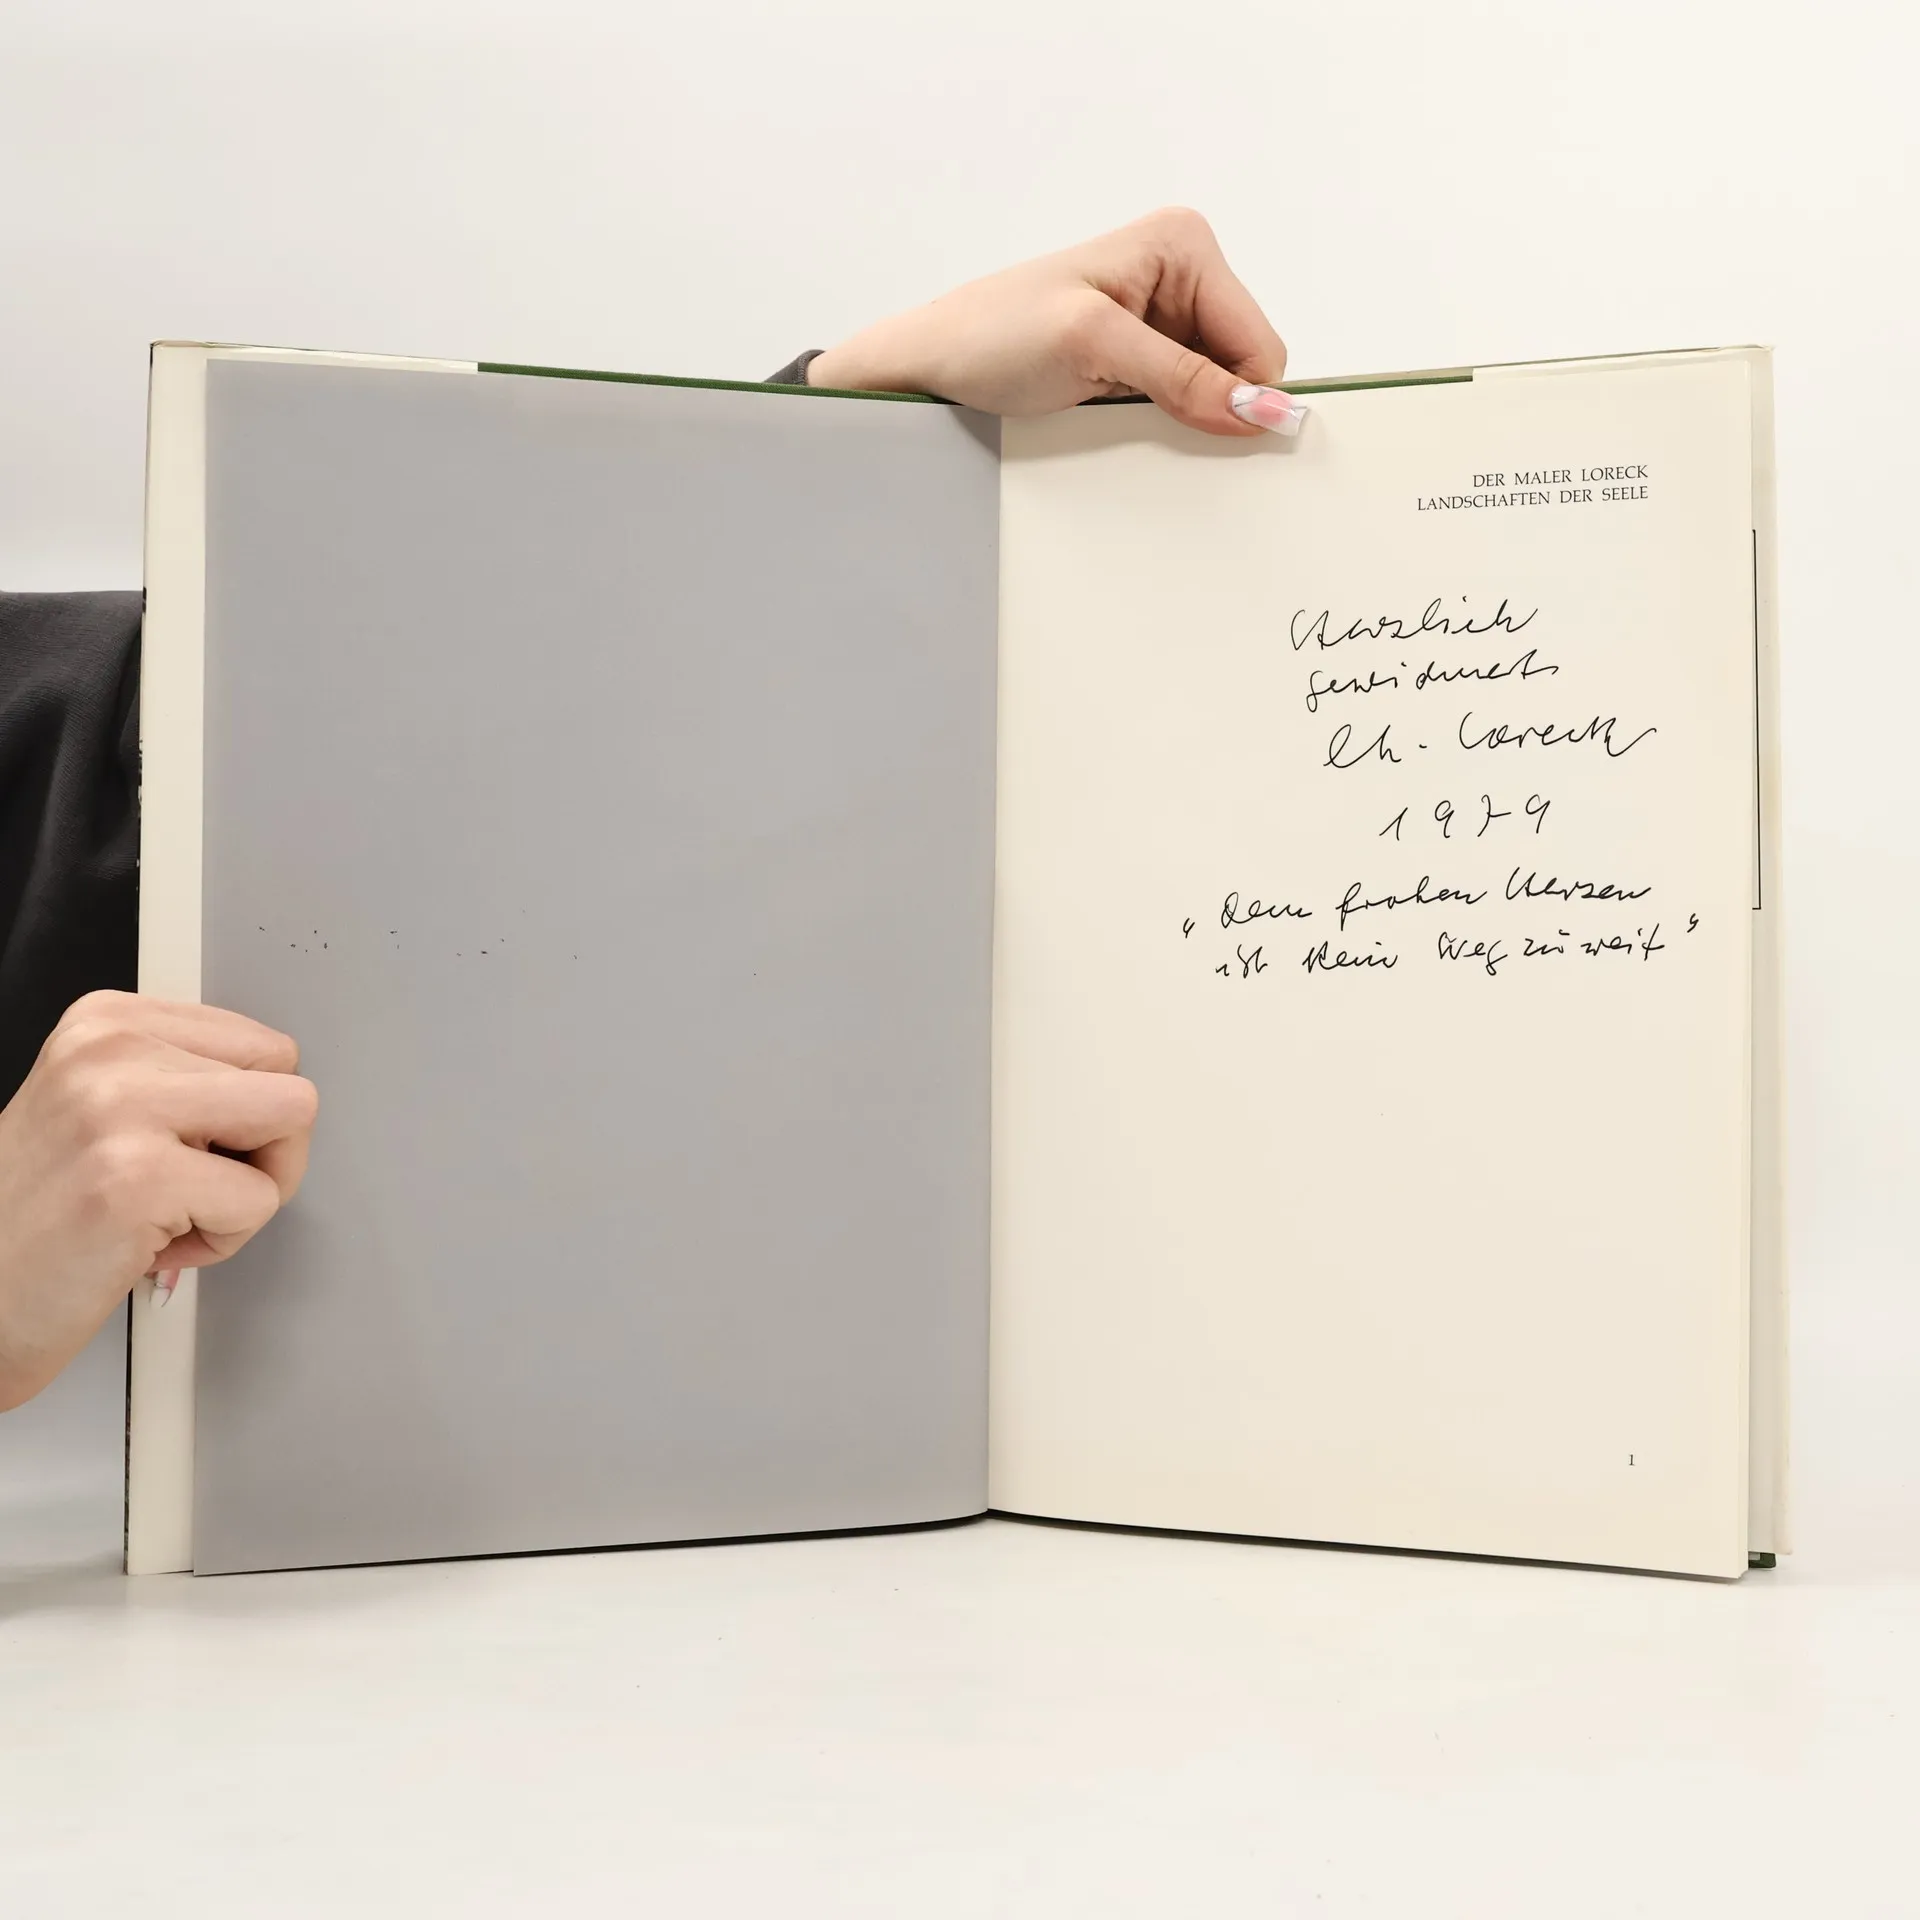 DER MALER LORECK
LANDSCHAFTEN DER SEELE
Herzlich
gewidmet
Ch. Loreck
1979
"Dem frohen Herzen
ist kein Weg zu weit"
1